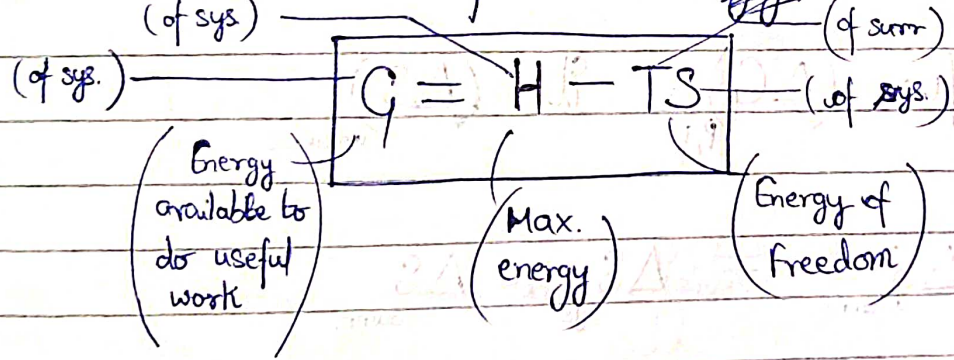 (of sys)
(of surr)
(of sys.)
G = H - TS
(of sys.)
Energy
available to
do useful
work
Max.
energy
Energy of
Freedom